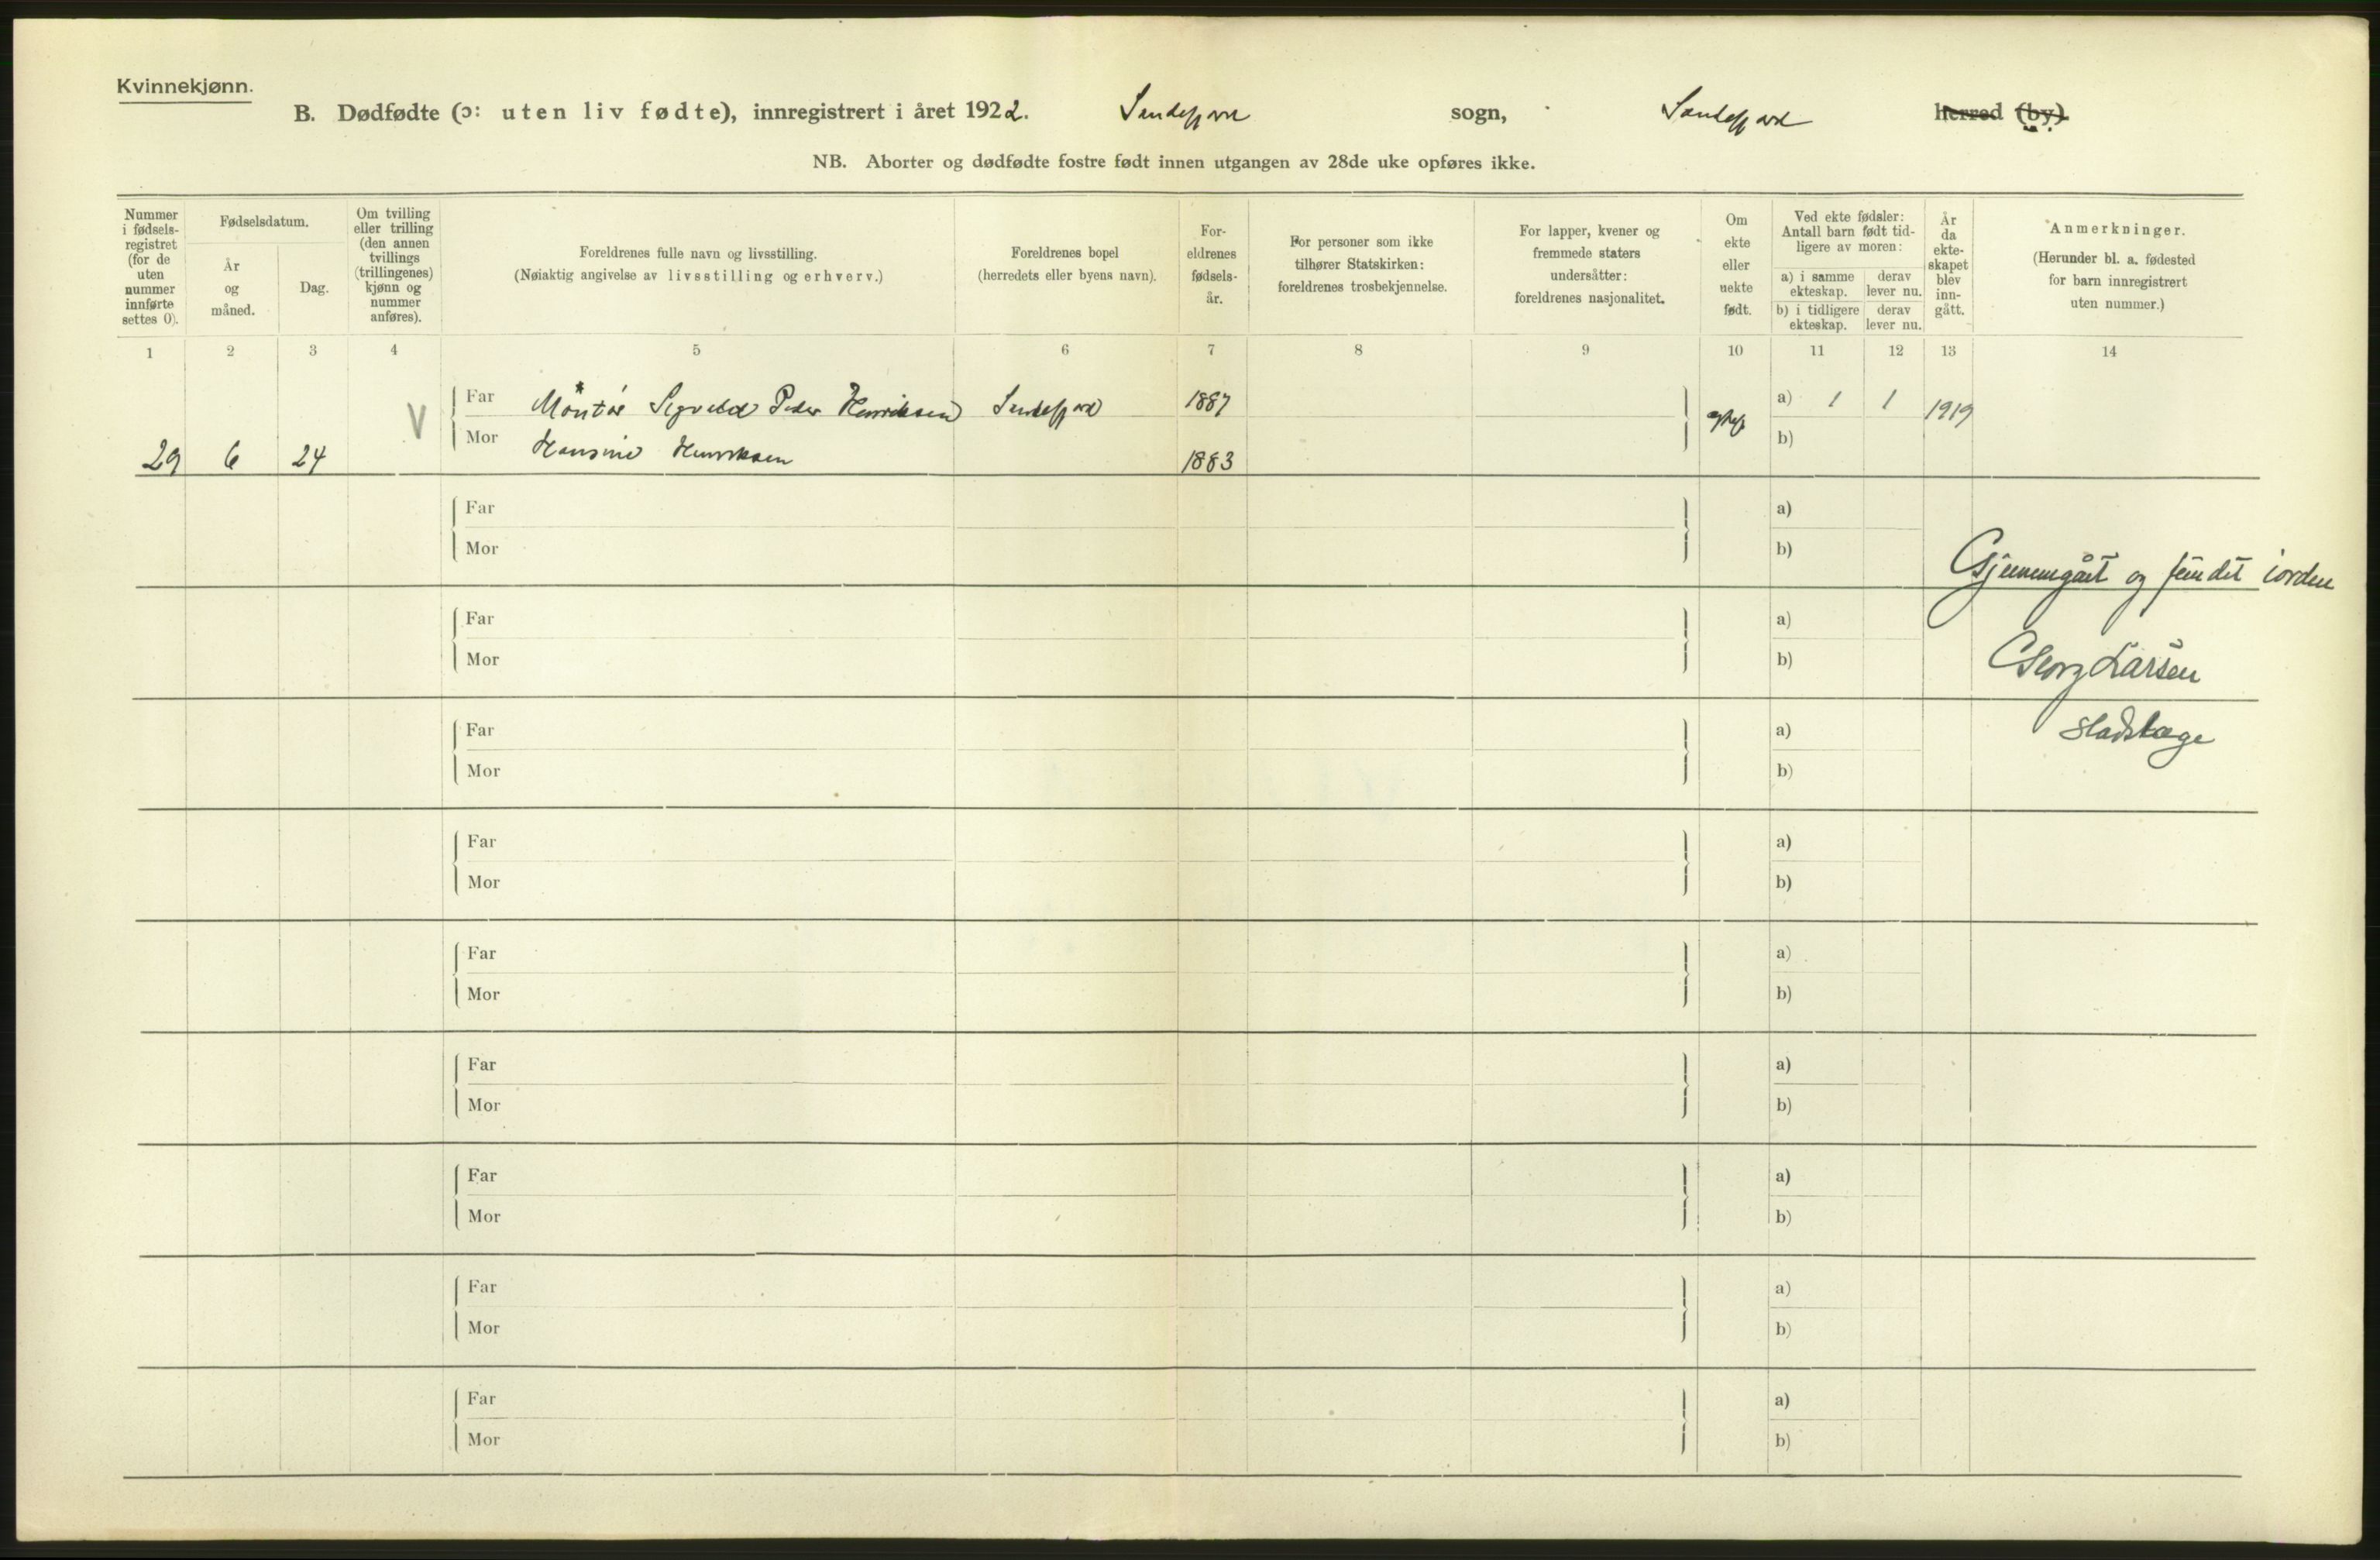 Kvinnekjønn.
B. Dødfødte (ɔ: uten liv fødte), innregistrert i året 1922. Sandefjord sogn, Sandefjord herred (by).
NB. Aborter og dødfødte fostre født innen utgangen av 28de uke opføres ikke.
Nummer i fødsels-registret (for de uten nummer innførte settes 0).
Fødselsdatum.
År og måned.
Dag.
Om tvilling eller trilling (den annen tvillings (trillingenes) kjønn og nummer anføres).
Foreldrenes fulle navn og livsstilling.
(Nøiaktig angivelse av livsstilling og erhverv.)
Foreldrenes bopel
(herredets eller byens navn).
For-eldrenes fødsels-år.
For personer som ikke tilhører Statskirken: foreldrenes trosbekjennelse.
For lapper, kvener og fremmede staters undersåtter: foreldrenes nasjonalitet.
Om ekte eller uekte født.
Ved ekte fødsler: Antall barn født tid-ligere av moren:
a) i samme ekteskap. derav lever nu.
b) i tidligere ekteskap. derav lever nu.
År da ekte-skapet blev inn-gått.
Anmerkninger.
(Herunder bl. a. fødested for barn innregistrert uten nummer.)
1 2 3 4 5 6 7 8 9 10 11 12 13 14
Far Montør Sigvald Peder Henriksen Sandefjord 1887 a) 1 1 1919
29 6 24 V Mor Hansine Henriksen 1883 b)
Far a)
Mor b)
Gjennemgåt og fundet iorden
Far a)
Mor b)
Georg Larsen
Far a)
Stadslæge
Mor b)
Far a)
Mor b)
Far a)
Mor b)
Far a)
Mor b)
Far a)
Mor b)
Far a)
Mor b)
Far a)
Mor b)